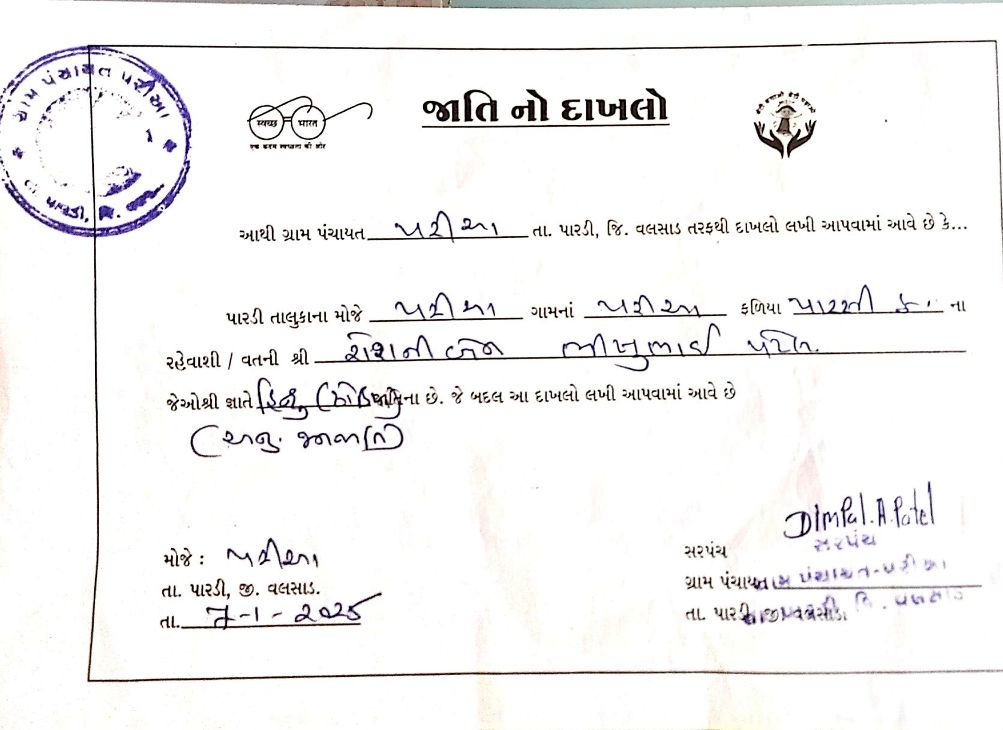 ગ્રામ પંચાયત પરીઆ
તા. પારડી, જિ.
स्वच्छ भारत
एक कदम स्वच्छता की ओर
જાતિ નો દાખલો
આથી ગ્રામ પંચાયત પરીઆ તા. પારડી, જિ. વલસાડ તરફથી દાખલો લખી આપવામાં આવે છે કે...
પારડી તાલુકાના મોજે પરીઆ ગામનાં પરીઆ ફળિયા પારસી ફ. ના
રહેવાશી / વતની શ્રી રોશનીબેન ભીખુભાઈ પટેલ
જેઓશ્રી જ્ઞાતે હિન્દુ જાતિના છે. જે બદલ આ દાખલો લખી આપવામાં આવે છે
(અનુ. જનજાતિ)
Dimpal.A.Patel
સરપંચ
મોજે : પરીઆ
સરપંચ
તા. પારડી, જી. વલસાડ.
ગ્રામ પંચાયત
ગ્રામ પંચાયત-પરીઆ
તા. 7-1-2025
તા. પારડી, જી. વલસાડ.
તા. પારડી, જિ. વલસાડ